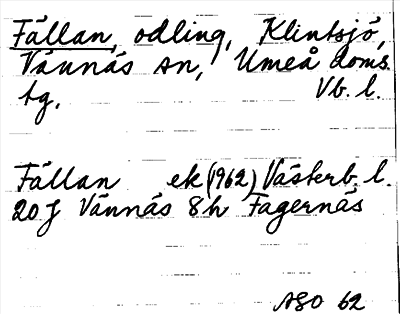 Fällan, odling, Klintsjö,
Vännäs sn, Umeå doms.
tg. Vb. l.
Fällan ek (1962) Västerb. l.
20 J Vännäs 8 h Fagernäs
ASO 62